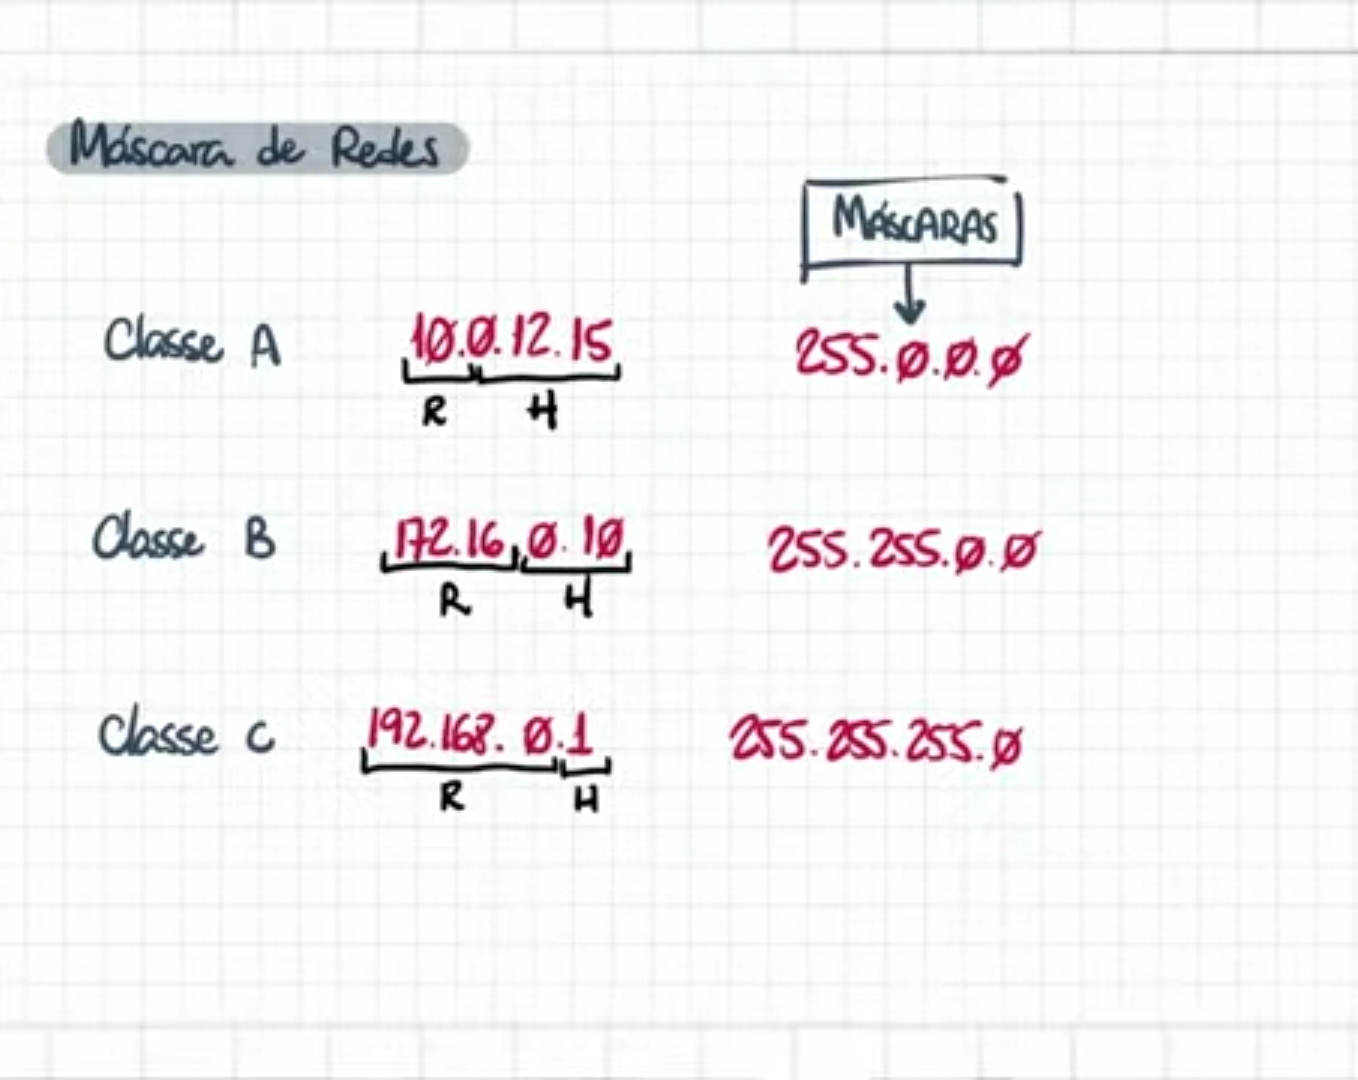 Máscara de Redes
MÁSCARAS
Classe A 10.0.12.15 255.0.0.0
R H
Classe B 172.16.0.10 255.255.0.0
R H
Classe C 192.168.0.1 255.255.255.0
R H